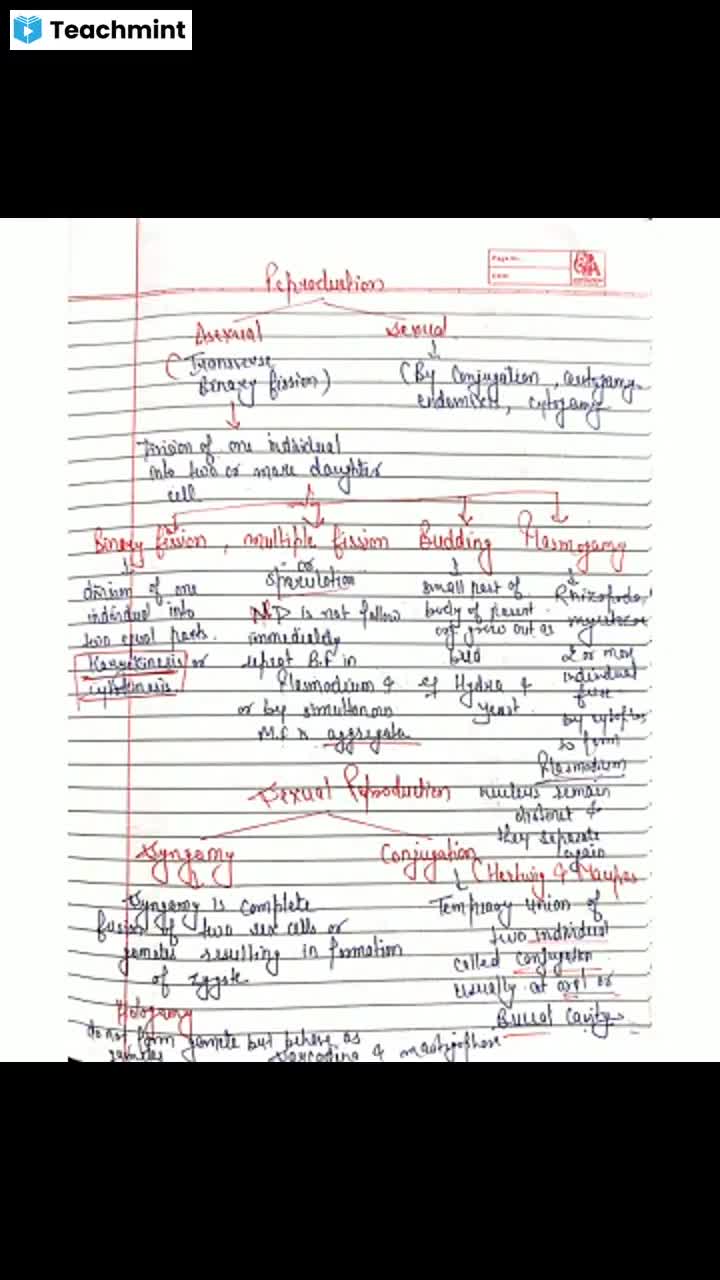 Teachmint
Reproduction
Asexual
Sexual
(Transverse
Binary fission)
(By Conjugation, autogamy
endomixis, cytogamy
Division of one individual
into two or more daughter
cell
Binary fission, multiple fission
Budding
Plasmogamy
division of one
individual into
two equal parts.
Karyokinesis or
cytokinesis
or
sporulation
N.D is not follow
immediately
repeat B.F in
Plasmodium &
or by simultanous
M.F in aggregata
small part of
body of parent
grows out as
bud
eg Hydra &
yeast
Rhizopoda,
2 or more
individual
fuse
by cytoplas
to form
Plasmodium
nucleus remain
distinct &
they separate
again
Sexual Reproduction
Syngamy
Conjugation (Hertwig & Maupas
Syngamy is complete
fusion of two sex cells or
gametes resulting in formation
of zygote
Temprary union of
two individual
called conjugation
usually at oral or
Buccal Cavity
Hologamy
do not form gamete but behave as
gametes
Sarcodina & mastigophora